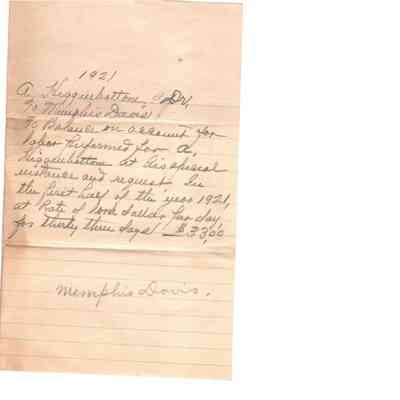 1921
A Higginbottom, Dr,
To Memphis Davis
To Balance on account for
labor Performed for A,
Higginbottom at his special
instance and request In
the first half of the year 1921,
at Rate of one dollar per day
for thirty three days $33,00
Memphis Davis.